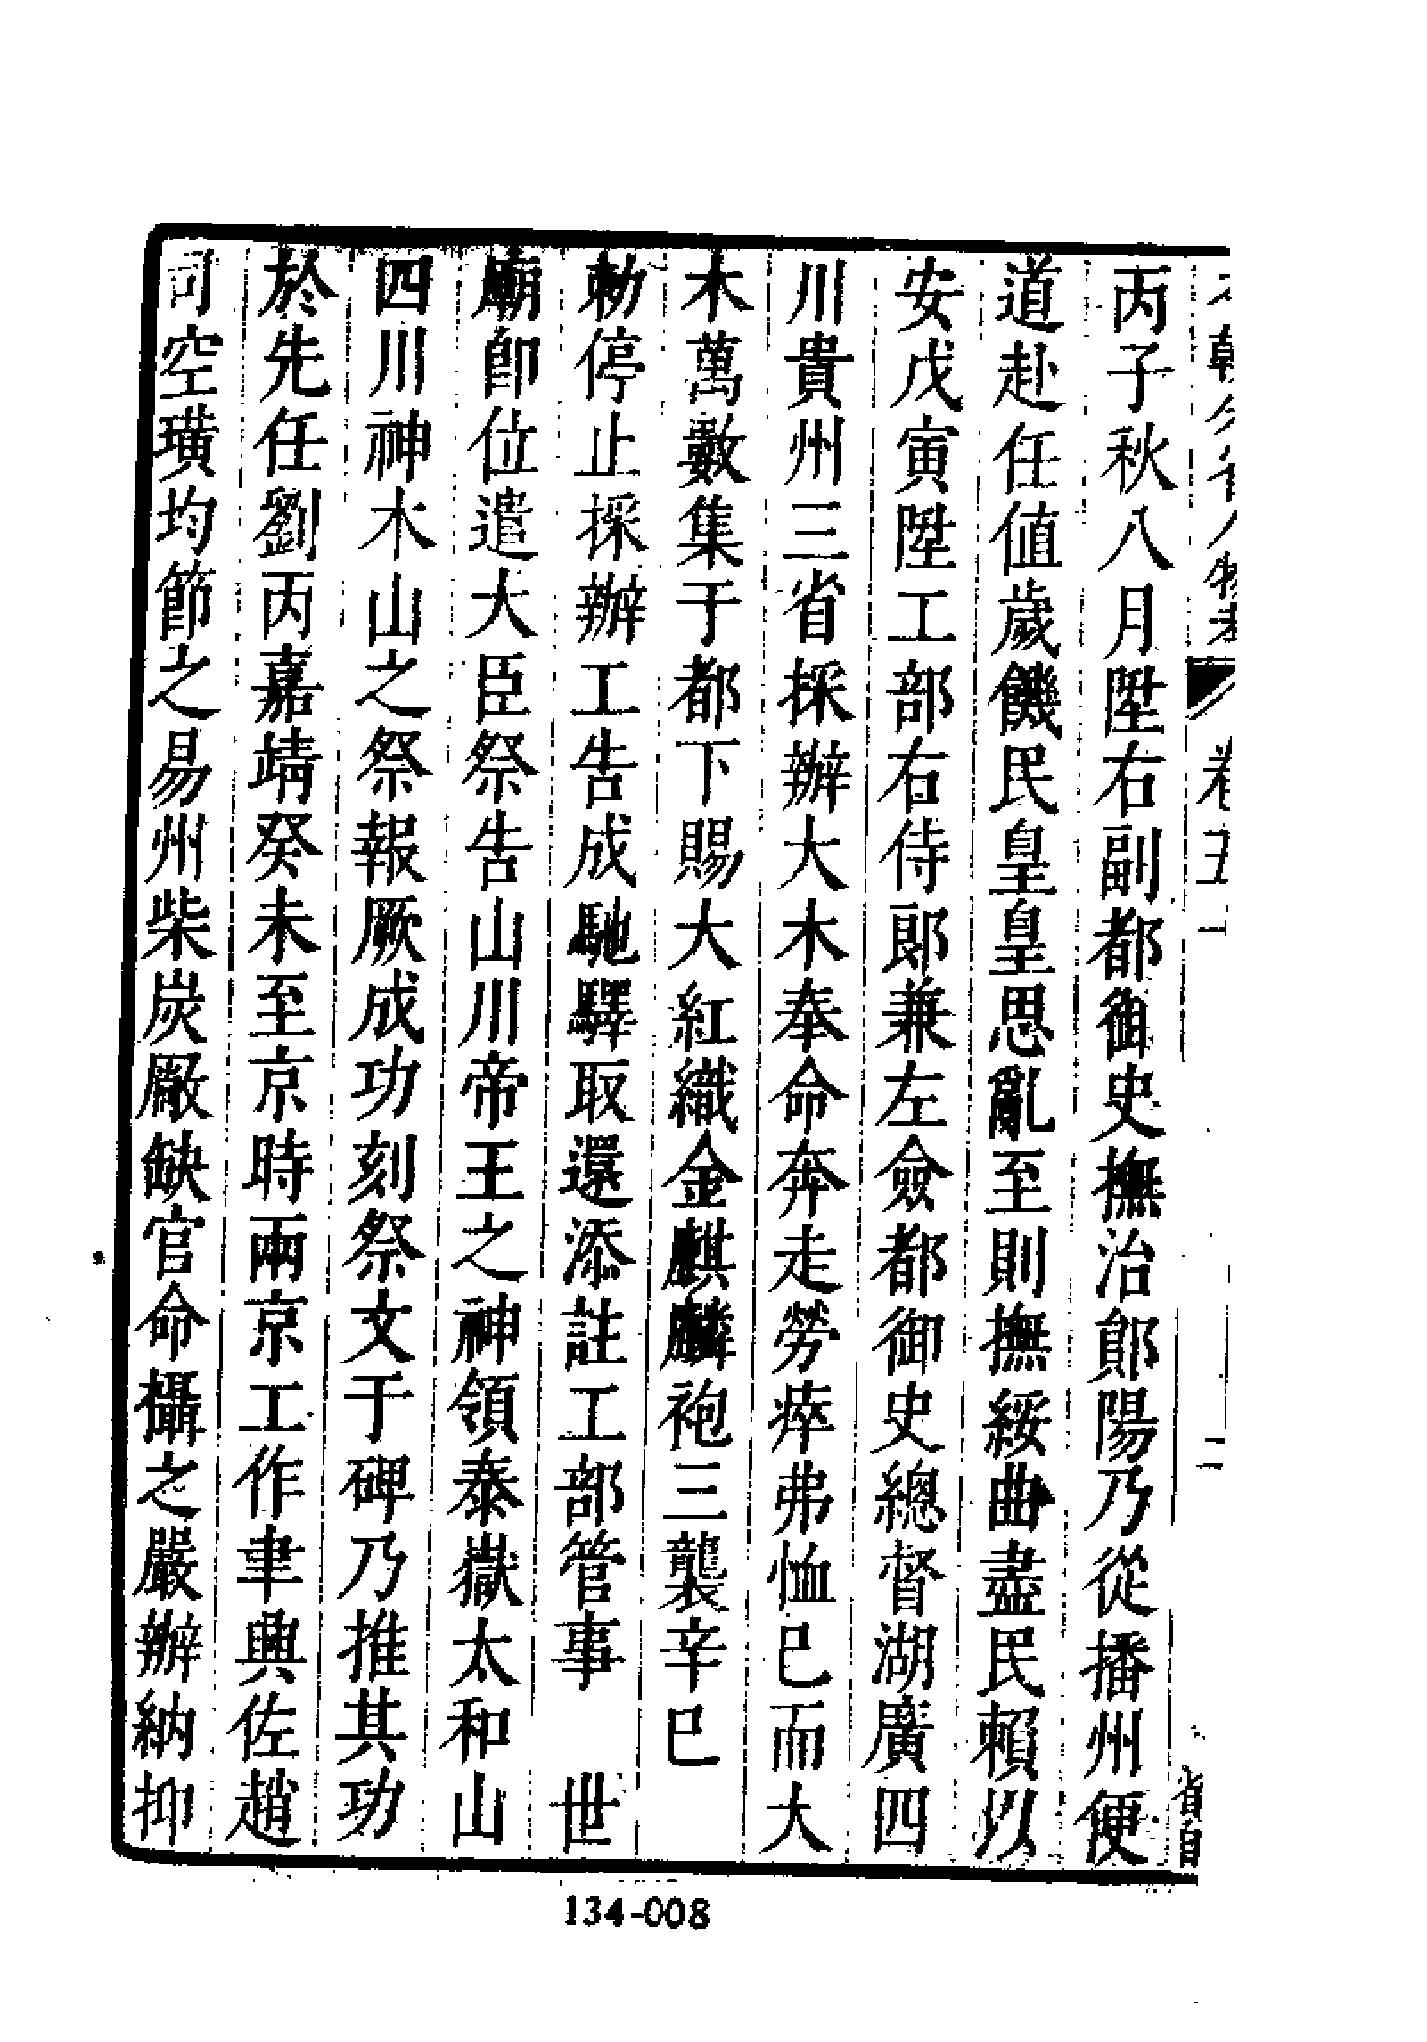 卷五
二
丙子秋八月陞右副都御史撫治鄖陽乃從播州便
道赴任值歲饑民皇皇思亂至則撫綏曲盡民賴以
安戊寅陞工部右侍郎兼左僉都御史總督湖廣四
川貴州三省採辦大木奉命奔走勞瘁弗恤巳而大
木萬數集于都下賜大紅織金麒麟袍三襲辛巳
勅停止採辦工告成馳驛取還添註工部管事　世
廟卽位遣大臣祭告山川帝王之神領泰嶽太和山
四川神木山之祭報厥成功刻祭文于碑乃推其功
於先任劉丙嘉靖癸未至京時兩京工作聿興佐趙
司空璜均節之易州柴炭厰缺官命攝之嚴辦納抑
134-008